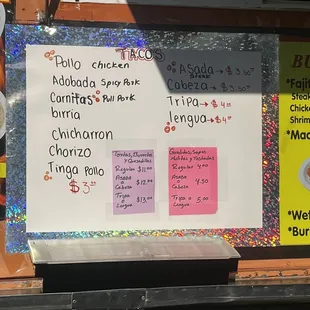 TACOS
Pollo chicken
Adobada Spicy Pork
Carnitas Pull Pork
birria
Chicharron
Chorizo
Tinga Pollo
$3.00
Asada Steak → $3.50
Cabeza → $3.50
Tripa → $4.00
lengua → $4.00
Tortas, Burritos
y Quesadillas
Regular $11.00
Asada
o $12.00
Cabeza
Tripa
o $13.00
Lengua
Gorditas, Sopes
Mulitas y Tostadas
Regular 4.00
Asada
o 4.50
Cabeza
Tripa o 5.00
Lengua
BU
*Fajit
Steak
Chick
Shrim
*Mac
*Wet
*Bur